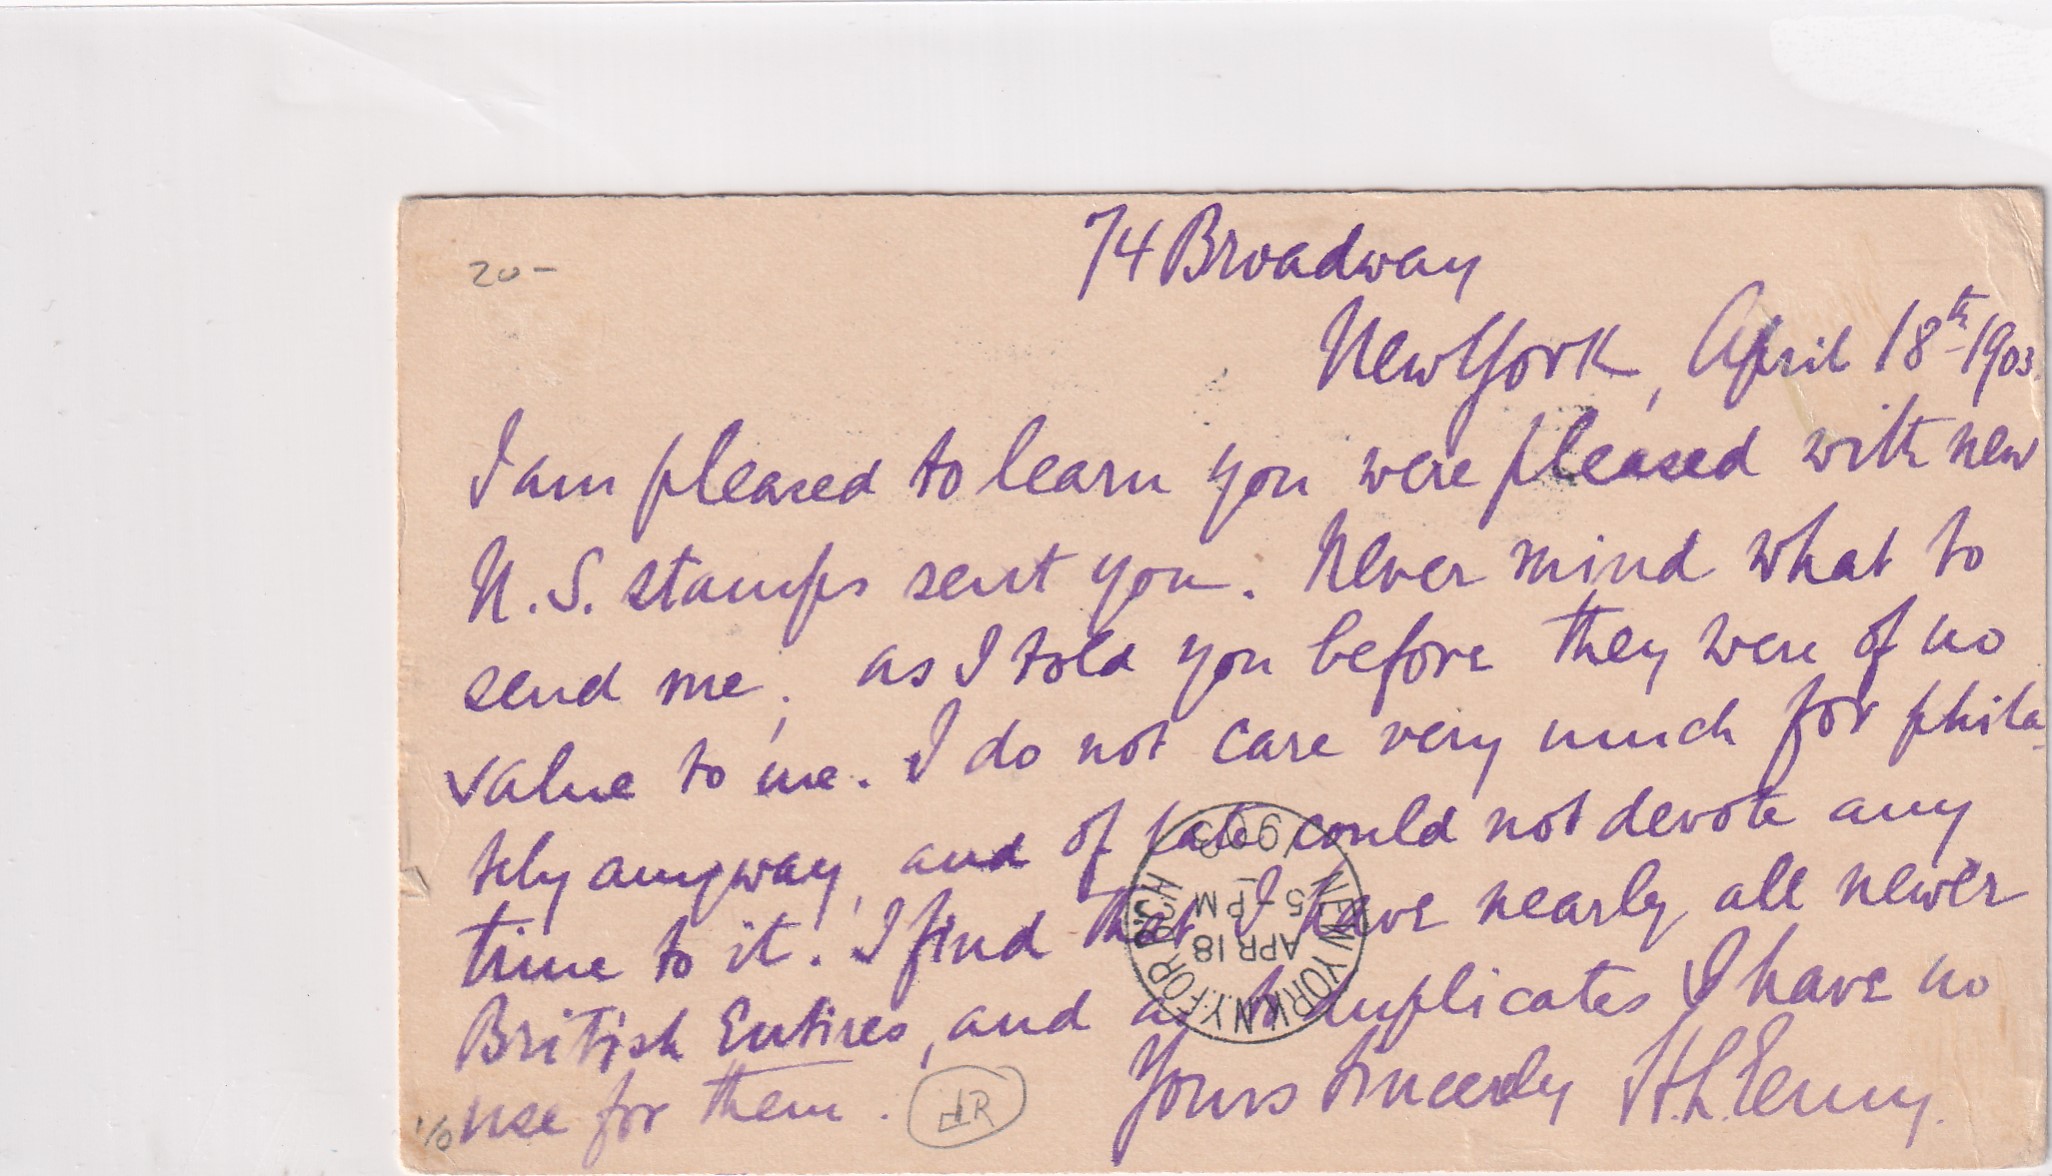 20-
74 Broadway
New York, April 18th 1903.
I am pleased to learn you were pleased with new
U.S. stamps sent you. Never mind what to
send me; as I told you before they were of no
value to me. I do not care very much for phila-
tely anyway, and of late could not devote any
time to it. I find that I have nearly all newer
British Entires, and as to duplicates I have no
use for them.
Yours Sincerely H.L.
NEW YORK, N.Y. FOR
APR 18
5-PM
1903